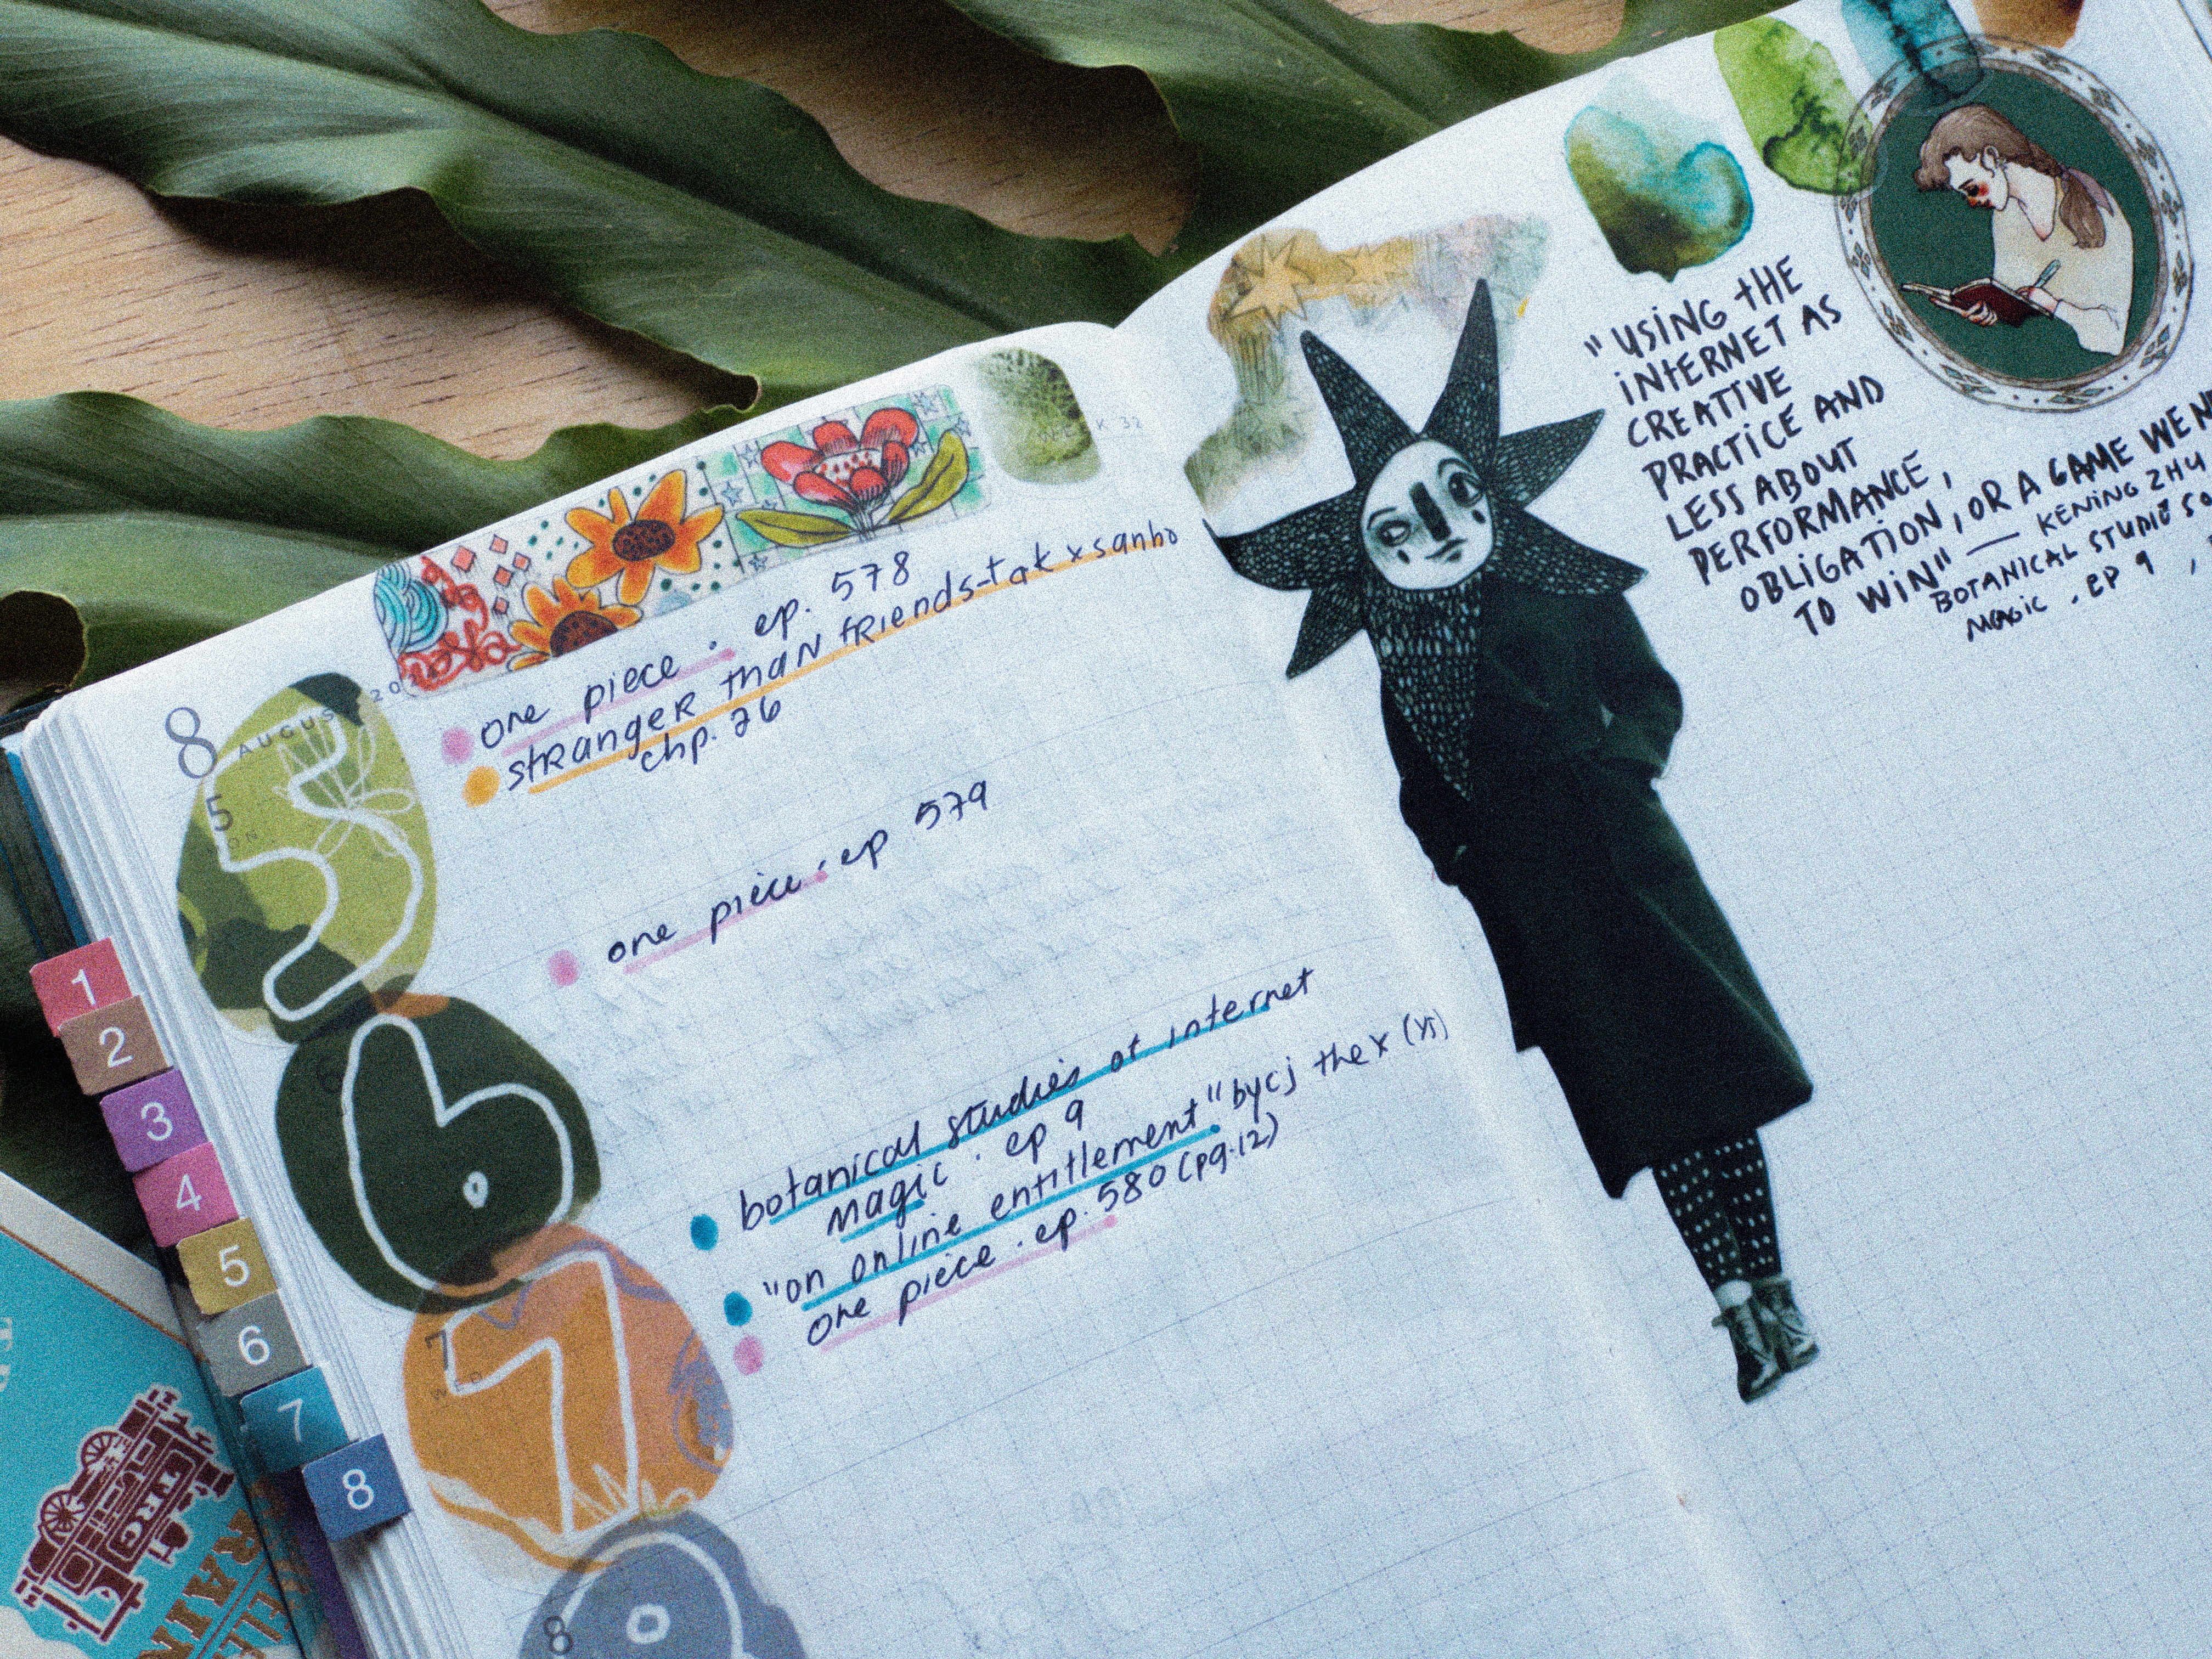 WEEK 32
8 AUGUST
5
MON
one piece . ep. 578
stranger than friends - tak x sanho
chp. 26
6
one piece . ep 579
7
WED
botanical studies of internet
magic . ep 9
"on online entitlement" by cj the x (yt)
one piece . ep. 580 (pg.12)
8
"USING THE
INTERNET AS
CREATIVE
PRACTICE AND
LESS ABOUT
PERFORMANCE,
OBLIGATION, OR A GAME WE
TO WIN" — KENING ZHU
BOTANICAL STUDIES
MAGIC . EP 9
1
2
3
4
5
6
7
8
TRC